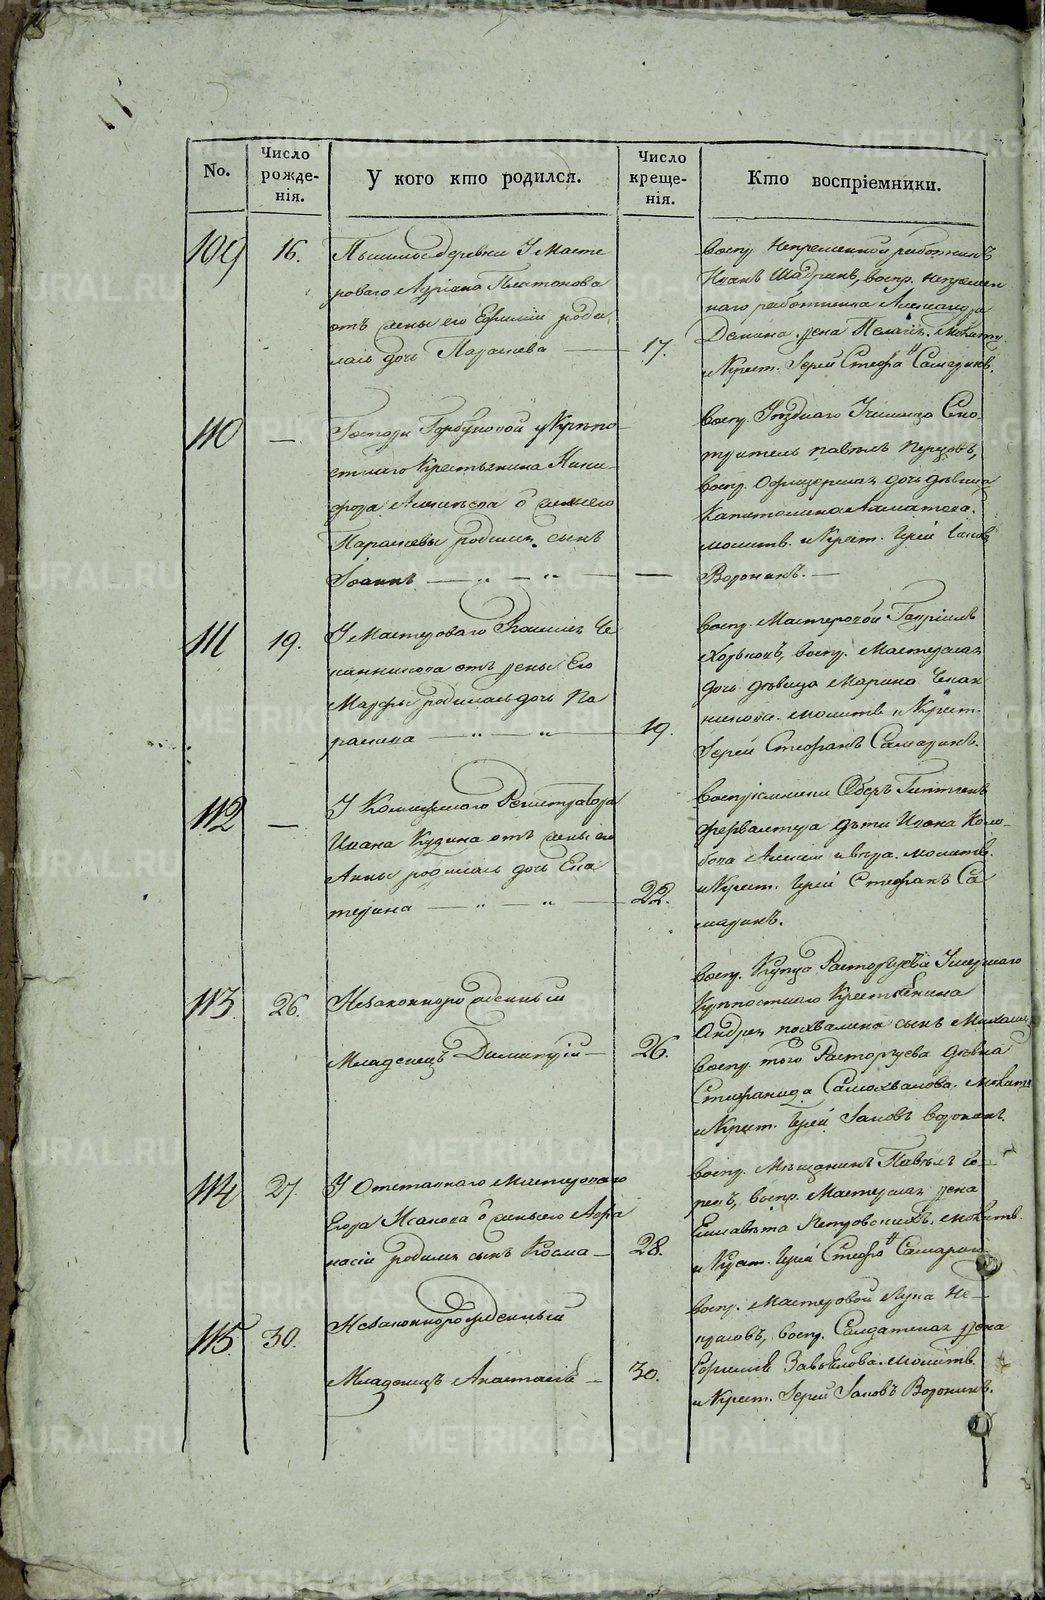 No.
Число рожде-
нія.
У кого кто родился.
Число креще-
нія.
Кто воспріемники.
109
16.
деревни У масте
роваго Адріана Платонова
отъ жены его роди
лась дочь Параскева
17.
воспр. Непременной работникъ
Иванъ Шадринъ, воспр. непремен
наго работника Александра
Демина жена молитв.
и Крест. Іерей Стефа Самаринъ.
110
—
Госпожи Горбуновой у Крѣпо
стнаго Крестьянина Ники
фора Алексѣева жены его
Параскевы родился сынъ
Іоаннъ
—
воспр. Уѣзднаго Училища Смо
тритель павелъ
воспр. Офицерская дочь дѣвица
Капитолина
молитв. и Крест. Іерей Іаковъ
Воронинъ.
111
19.
У Мастероваго Че
канникова отъ жены Его
Марфы родилась дочь Па
раскева
19.
воспр. Мастеровой Гавріилъ
воспр. Мастерская
дочь дѣвица Марина Чекан
никова. молитв. и Крест.
Іерей Стефанъ Самаринъ.
112
—
У Регистратора
Ивана Кудина отъ жены его
Анны родилась дочь Ека
терина
22.
воспріемники Оберъ Гиттенъ
фервалтера дѣти Ивана Коло
бова Алексѣй и вѣра. молитв.
и Крест. Іерей Стефанъ Са
маринъ.
113
26.
Незаконнорожденный
Младенецъ Димитрій
26.
воспр. Купца Расторгуева
Крѣпостнаго Крестьянина
Андрея сынъ Михаилъ
воспр. того Расторгуева дѣвка
Стефанида Самохвалова. молитв.
и Крест. Іерей Іаковъ воронинъ.
114
27.
У Отставнаго Мастероваго
Егора Исакова жены его Афа
насіи родился сынъ Косма
28.
воспр. Мѣщанинъ Павелъ
воспр. Мастерская жена
Елисавета Петровскихъ. молитв.
и Крест. Іерей Стефа Самаринъ
115
30.
Незаконнорожденный
Младенецъ Анастасія
30.
воспр. Мастеровой Лука Не
красовъ, воспр. Солдатская жена
Завьялова. молитв.
и Крест. Іерей Іаковъ Воронинъ.
METRIKI.GASO-URAL.RU